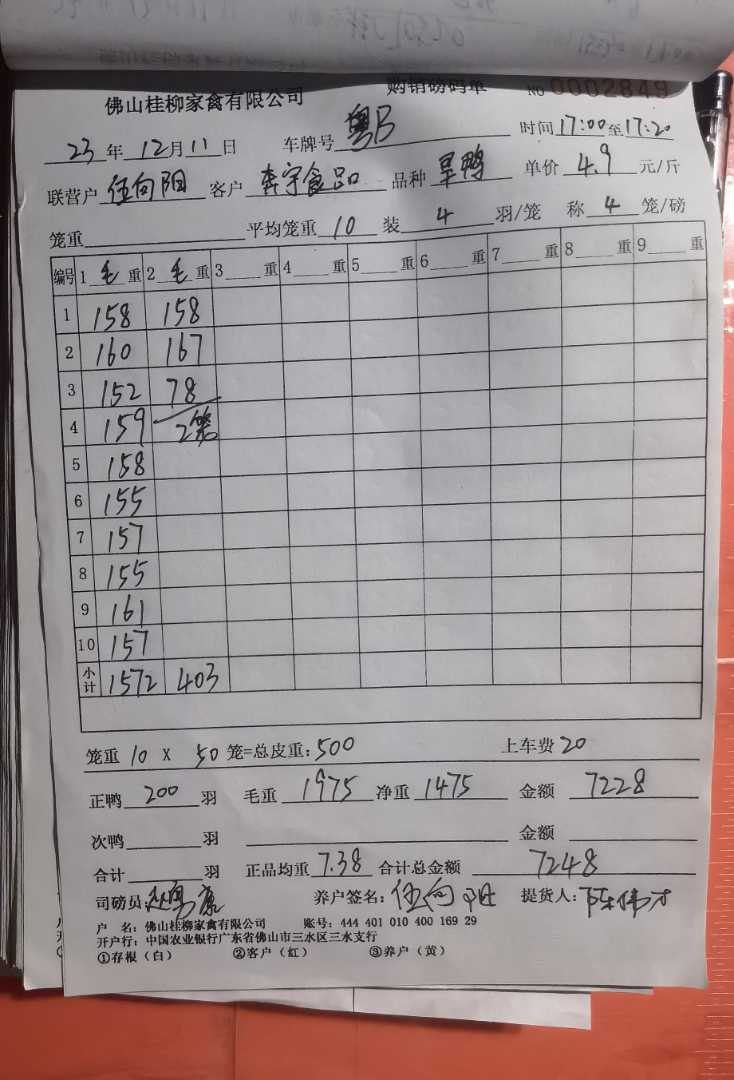 佛山桂柳家禽有限公司 购销磅码单 NO 0002849
23年12月11日 车牌号 粤B 时间17:00至17:20
联营户 伍向阳 客户 森宇食品 品种 旱鸭 单价 4.9 元/斤
笼重 平均笼重 10 装 4 羽/笼 称 4 笼/磅
编号 1 毛 重 2 毛 重 3 重 4 重 5 重 6 重 7 重 8 重 9 重
1 158 158
2 160 167
3 152 78
4 159 2笼
5 158
6 155
7 157
8 155
9 161
10 157
小计 1572 403
笼重 10 X 50 笼=总皮重:500 上车费 20
正鸭 200 羽 毛重 1975 净重 1475 金额 7228
次鸭 羽 金额
合计 羽 正品均重 7.38 合计总金额 7248
司磅员 养户签名:伍向阳 提货人:陈伟才
户 名:佛山桂柳家禽有限公司 账号:444 401 010 400 169 29
开户行:中国农业银行广东省佛山市三水区三水支行
①存根(白) ②客户(红) ③养户(黄)